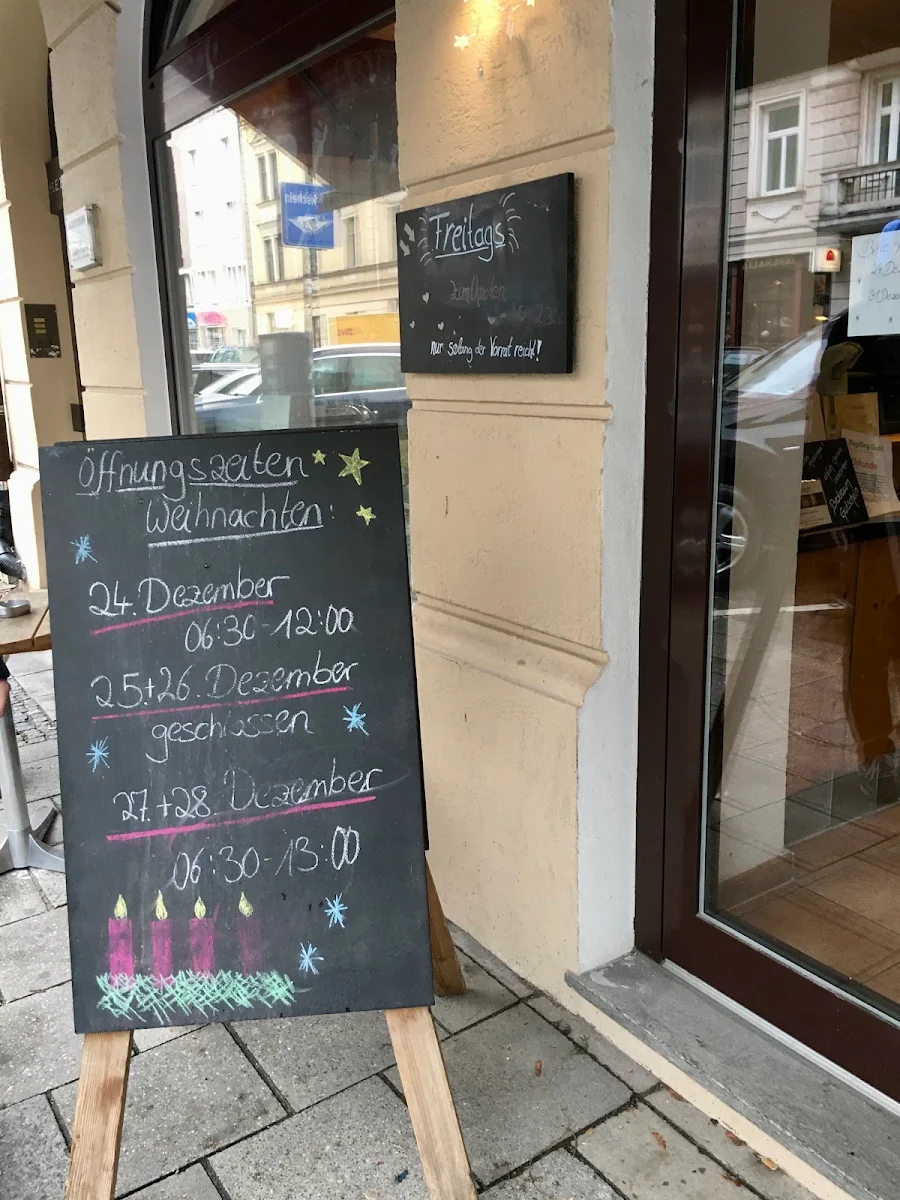 Öffnungszeiten
Weihnachten:
24. Dezember
06:30-12:00
25+26. Dezember
geschlossen
27.+28. Dezember
06:30-13:00
Freitags
nur solang der Vorrat reicht!